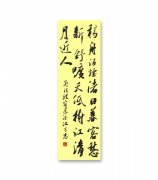 移舟泊煙渚日暮客愁
新野曠天低樹江清
月近人